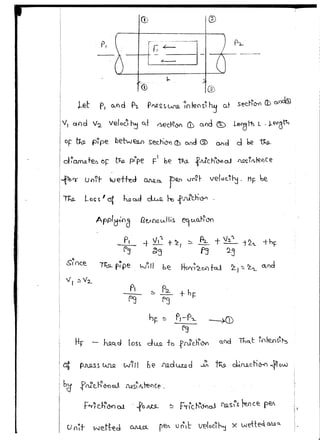 ① ②
P₁ F₁ P₂
L
① ②
Let P₁ and P₂ Pressure intensity at section ① and②
V₁ and V₂ velocity at section ① and ② Length L - Length
of the pipe between section ① and ② and d be the
diameter of the pipe f' be the frictional resistance
for unit wetted area per unit velocity. Hf be
The Loss of head due to friction.
Applying Bernoullis equation
P₁/ρg + V₁²/2g + z₁ = P₂/ρg + V₂²/2g + z₂ + hf
Since The pipe will be Horizontal z₁ = z₂ and
V₁ = V₂
P₁/ρg = P₂/ρg + hf
hf = P₁-P₂/ρg →①
Hf – head loss due to friction and That intensity
of pressure will be reduced in the direction flow
by frictional resistence.
Frictional force = Frictional resistence per
Unit wetted area per unit velocity x wetted area